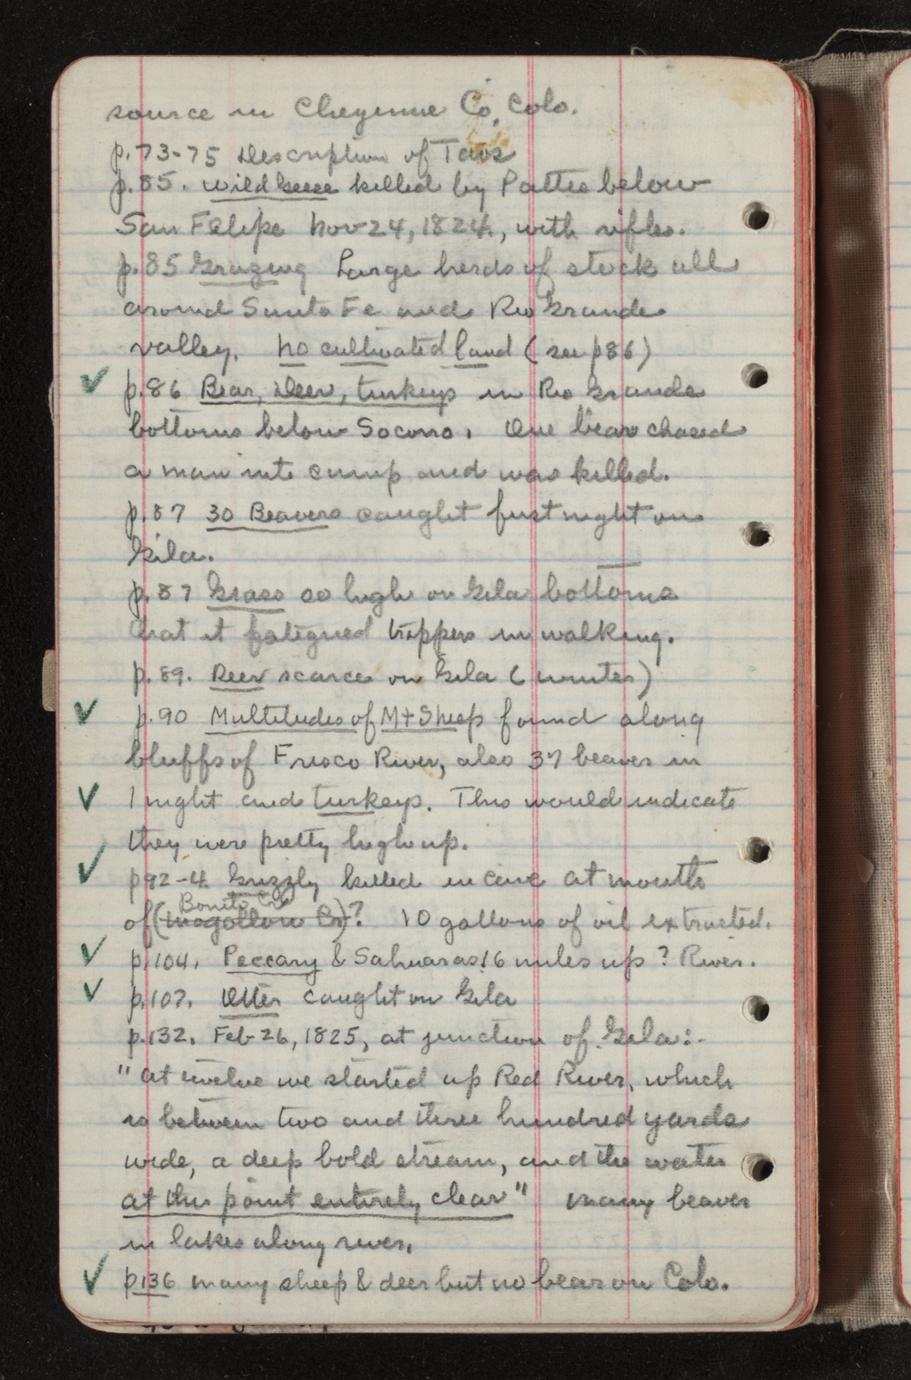 source in Cheyenne Co, Colo.
p.73-75 Description of Taos
p.85. wild geese killed by Pattie below
San Felipe Nov 24, 1824, with rifles.
p.85 Grazing Large herds of stock all
around Santa Fe and Rio Grande
valley. No cultivated land (see p86)
✓ p.86 Bear, Deer, turkeys in Rio Grande
bottoms below Socorro. One bear chased
a man into camp and was killed.
p.87 30 Beavers caught first night on
Gila.
p.87 Grass so high on Gila bottoms
that it fatigued trappers in walking.
p.89. Deer scarce on Gila (winter)
✓ p.90 Multitudes of Mt Sheep found along
bluffs of Frisco River, also 37 beaver in
✓ 1 night and turkeys. This would indicate
they were pretty high up.
✓ p92-4. Grizzly killed in cave at mouth
Bonita Cr
of (Mogollon Cr)? 10 gallons of oil extracted.
✓ p.104. Peccary & Sahuaras 16 miles up ? River.
✓ p.107. Otter caught on Gila
p.132. Feb-26, 1825, at junction of Gila:-
"at twelve we started up Red River, which
is between two and three hundred yards
wide, a deep bold stream, and the water
at this point entirely clear" many beaver
in lakes along river.
✓ p136 many sheep & deer but no bear on Colo.